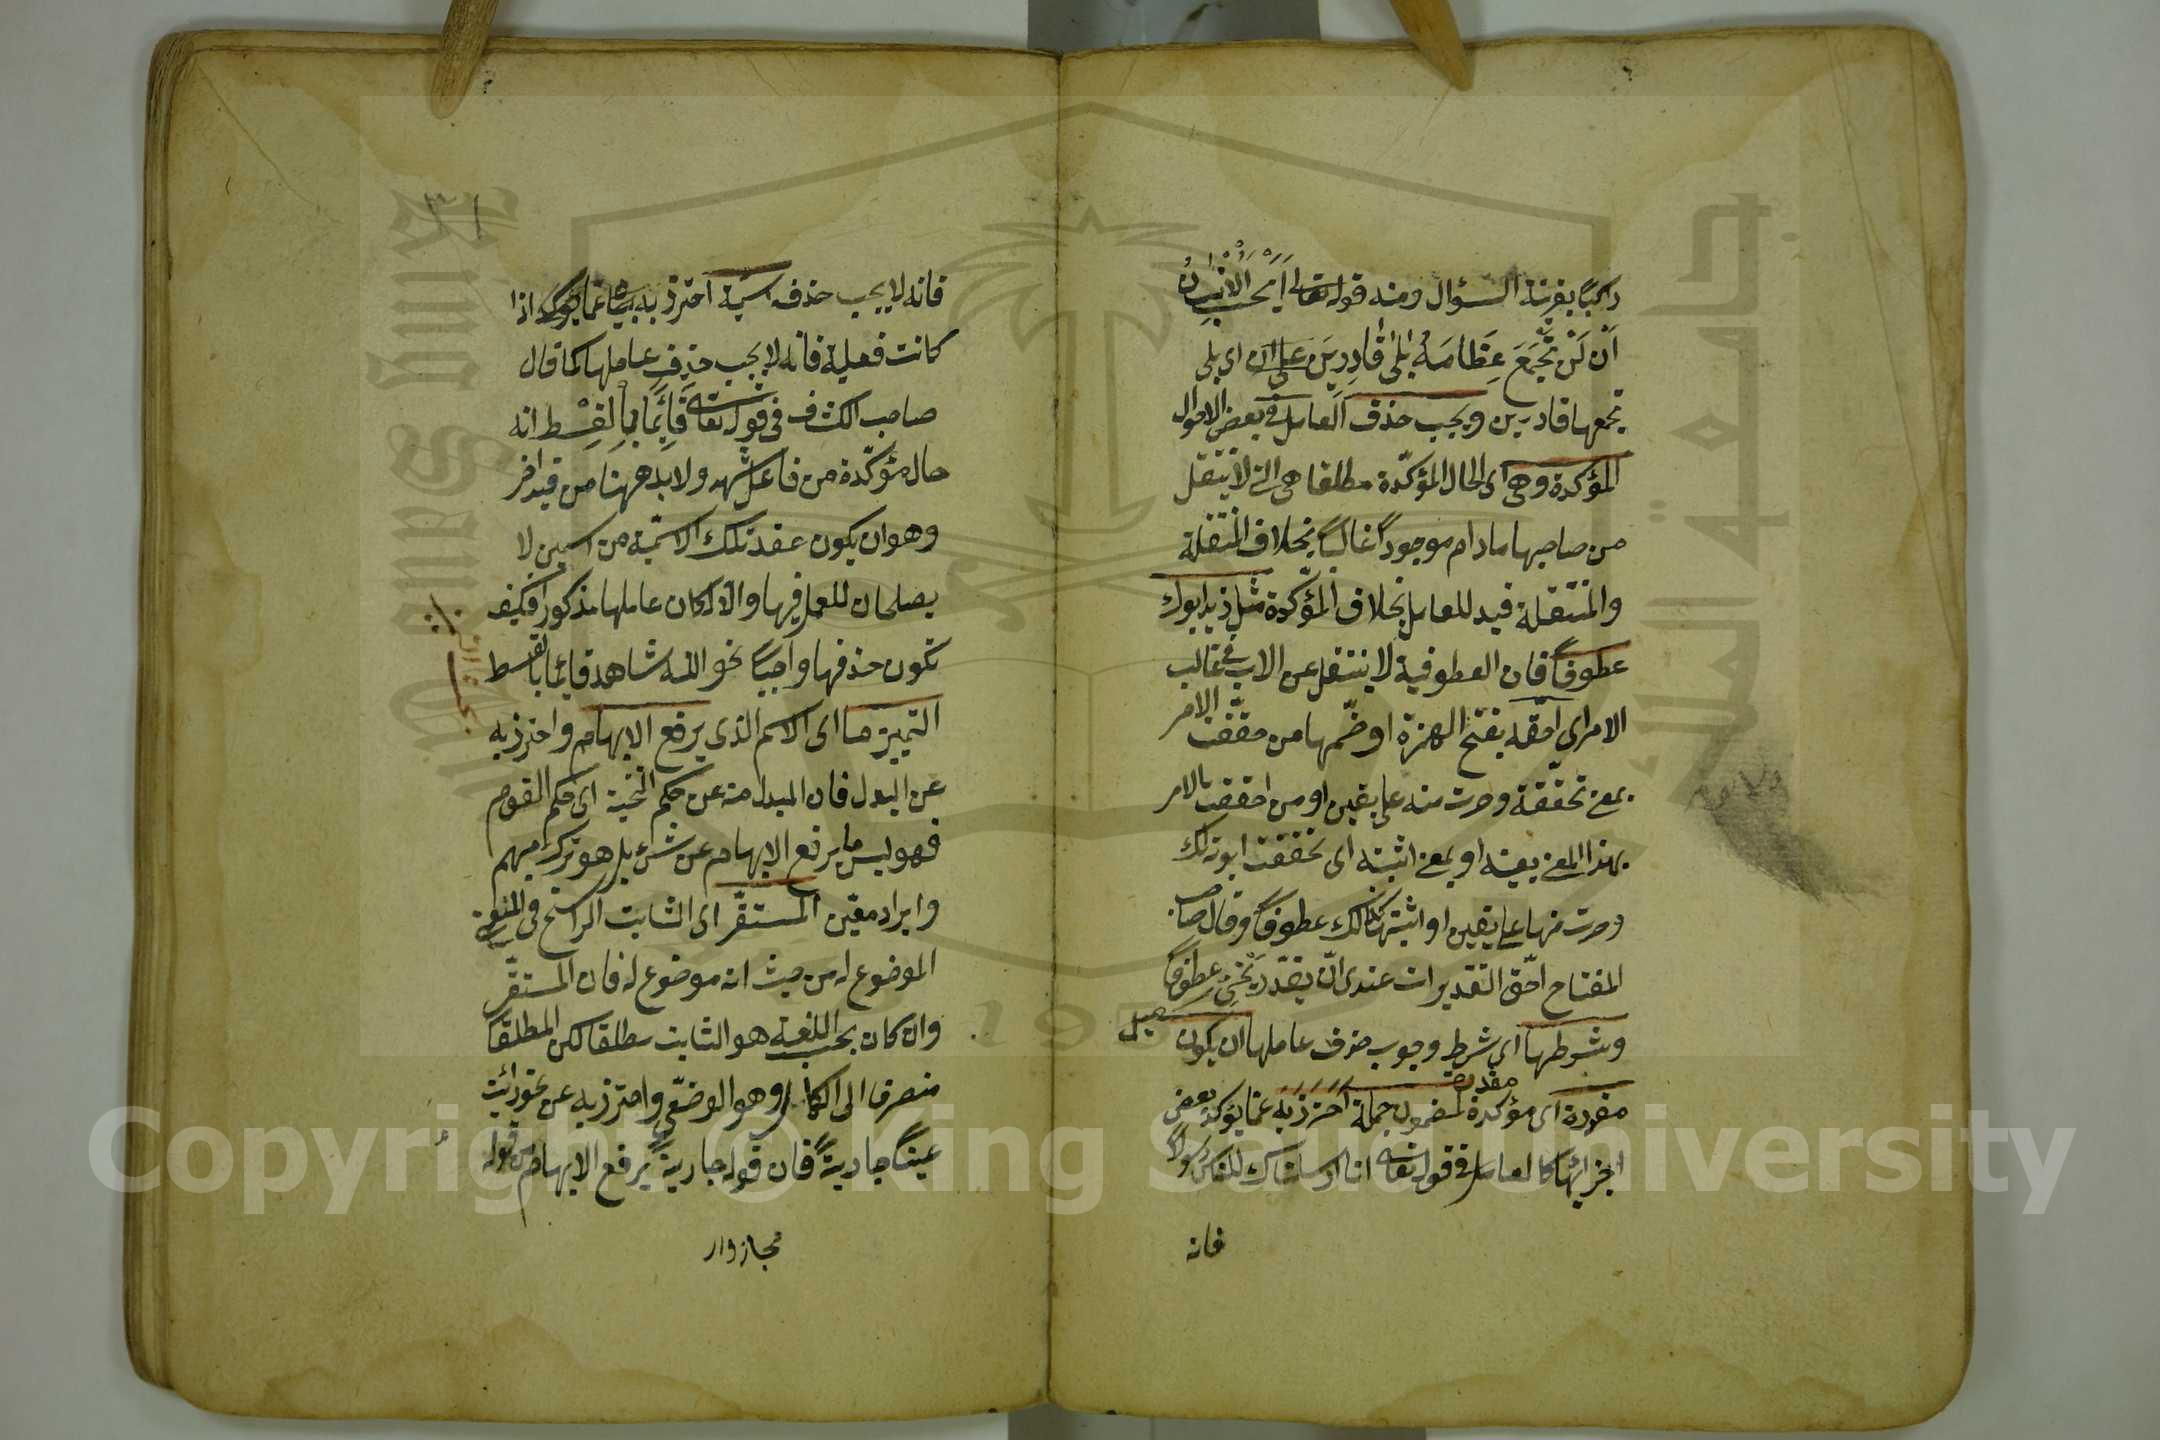 راكبا بقرينة السؤال ومنه قوله تعالى أيحسب الانسان
أن لن نجمع عظامه بلى قادرين على ان اى بلى
نجمعها قادرين ويجب حذف العامل فى بعض الاحوال
المؤكدة وهى اى الحال المؤكدة مطلقا هى التى لا تنتقل
من صاحبها ما دام موجودا غالبا بخلاف المنتقلة
والمنتقلة قيد للعامل بخلاف المؤكدة مثل زيد ابوك
عطوفا فان العطوفية لا ينتقل عن الاب فى غالب
الامر اي احقه بفتح الهمزة او ضمها من حققت الامر
بمعنى تحققته وصرت منه على يقين او من احققت الامر
بهذا المعنى بعينه او بمعنى اثبته اى تحققت ابوته لك
وصرت منها على يقين او اثبتها لك عطوفا وقال صاحب
المفتاح احق التقديرات عندى ان يقدر يحنى عطوفا
وشرطها اى شرط وجوب حذف عاملها ان يكون
مقررة اى مؤكدة لمضمون جملة احترز به عما يؤكد بعض
اجزائها كالعامل فى قوله تعالى انا ارسلناك للناس رسولا
فانه
فانه لا يجب حذفه اسمية احترز به عما اذا
كانت فعلية فانه لا يجب حذف عاملها كما قال
صاحب الكشاف فى قوله تعالى قائما بالقسط انه
حال مؤكدة من فاعل شهد ولا بد ههنا من قيد اخر
وهو ان يكون عقد تلك الاسمية من اسمين لا
يصلحان للعمل فيها والا لكان عاملها مذكورا فكيف
تكون حذفها واجبا نحو الله شاهد قائما بالقسط
التمييز ما اى الاسم الذى يرفع الابهام واحترز به
عن البدل فان المبدل منه عن حكم التنحية اى حكم القوم
فهو ليس ما يرفع الابهام عن شئ بل هو ترك مبهم
وايراد معين المستقر اى الثابت الراسخ فى المعنى
الموضوع له من حيث انه موضوع له فان المستقر
وان كان بحسب اللغة هو الثابت مطلقا لكن المطلق
منصرف الى الكامل وهو الوضعى واحترز به عن نحو رأيت
عينا جارية فان قوله جارية يرفع الابهام من قوله